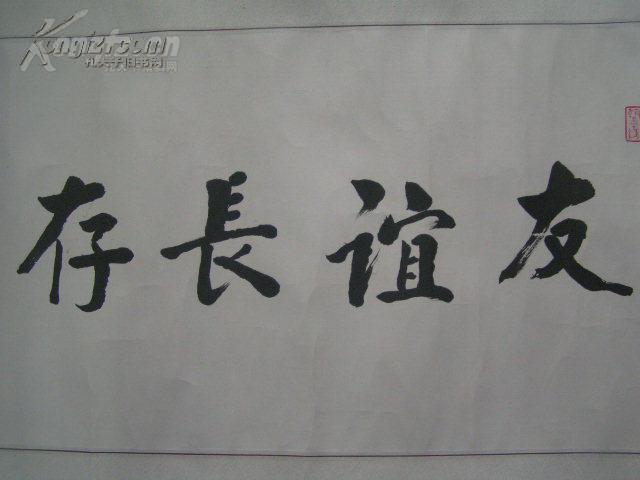 友誼長存
Kongfz.com
孔夫子旧书网